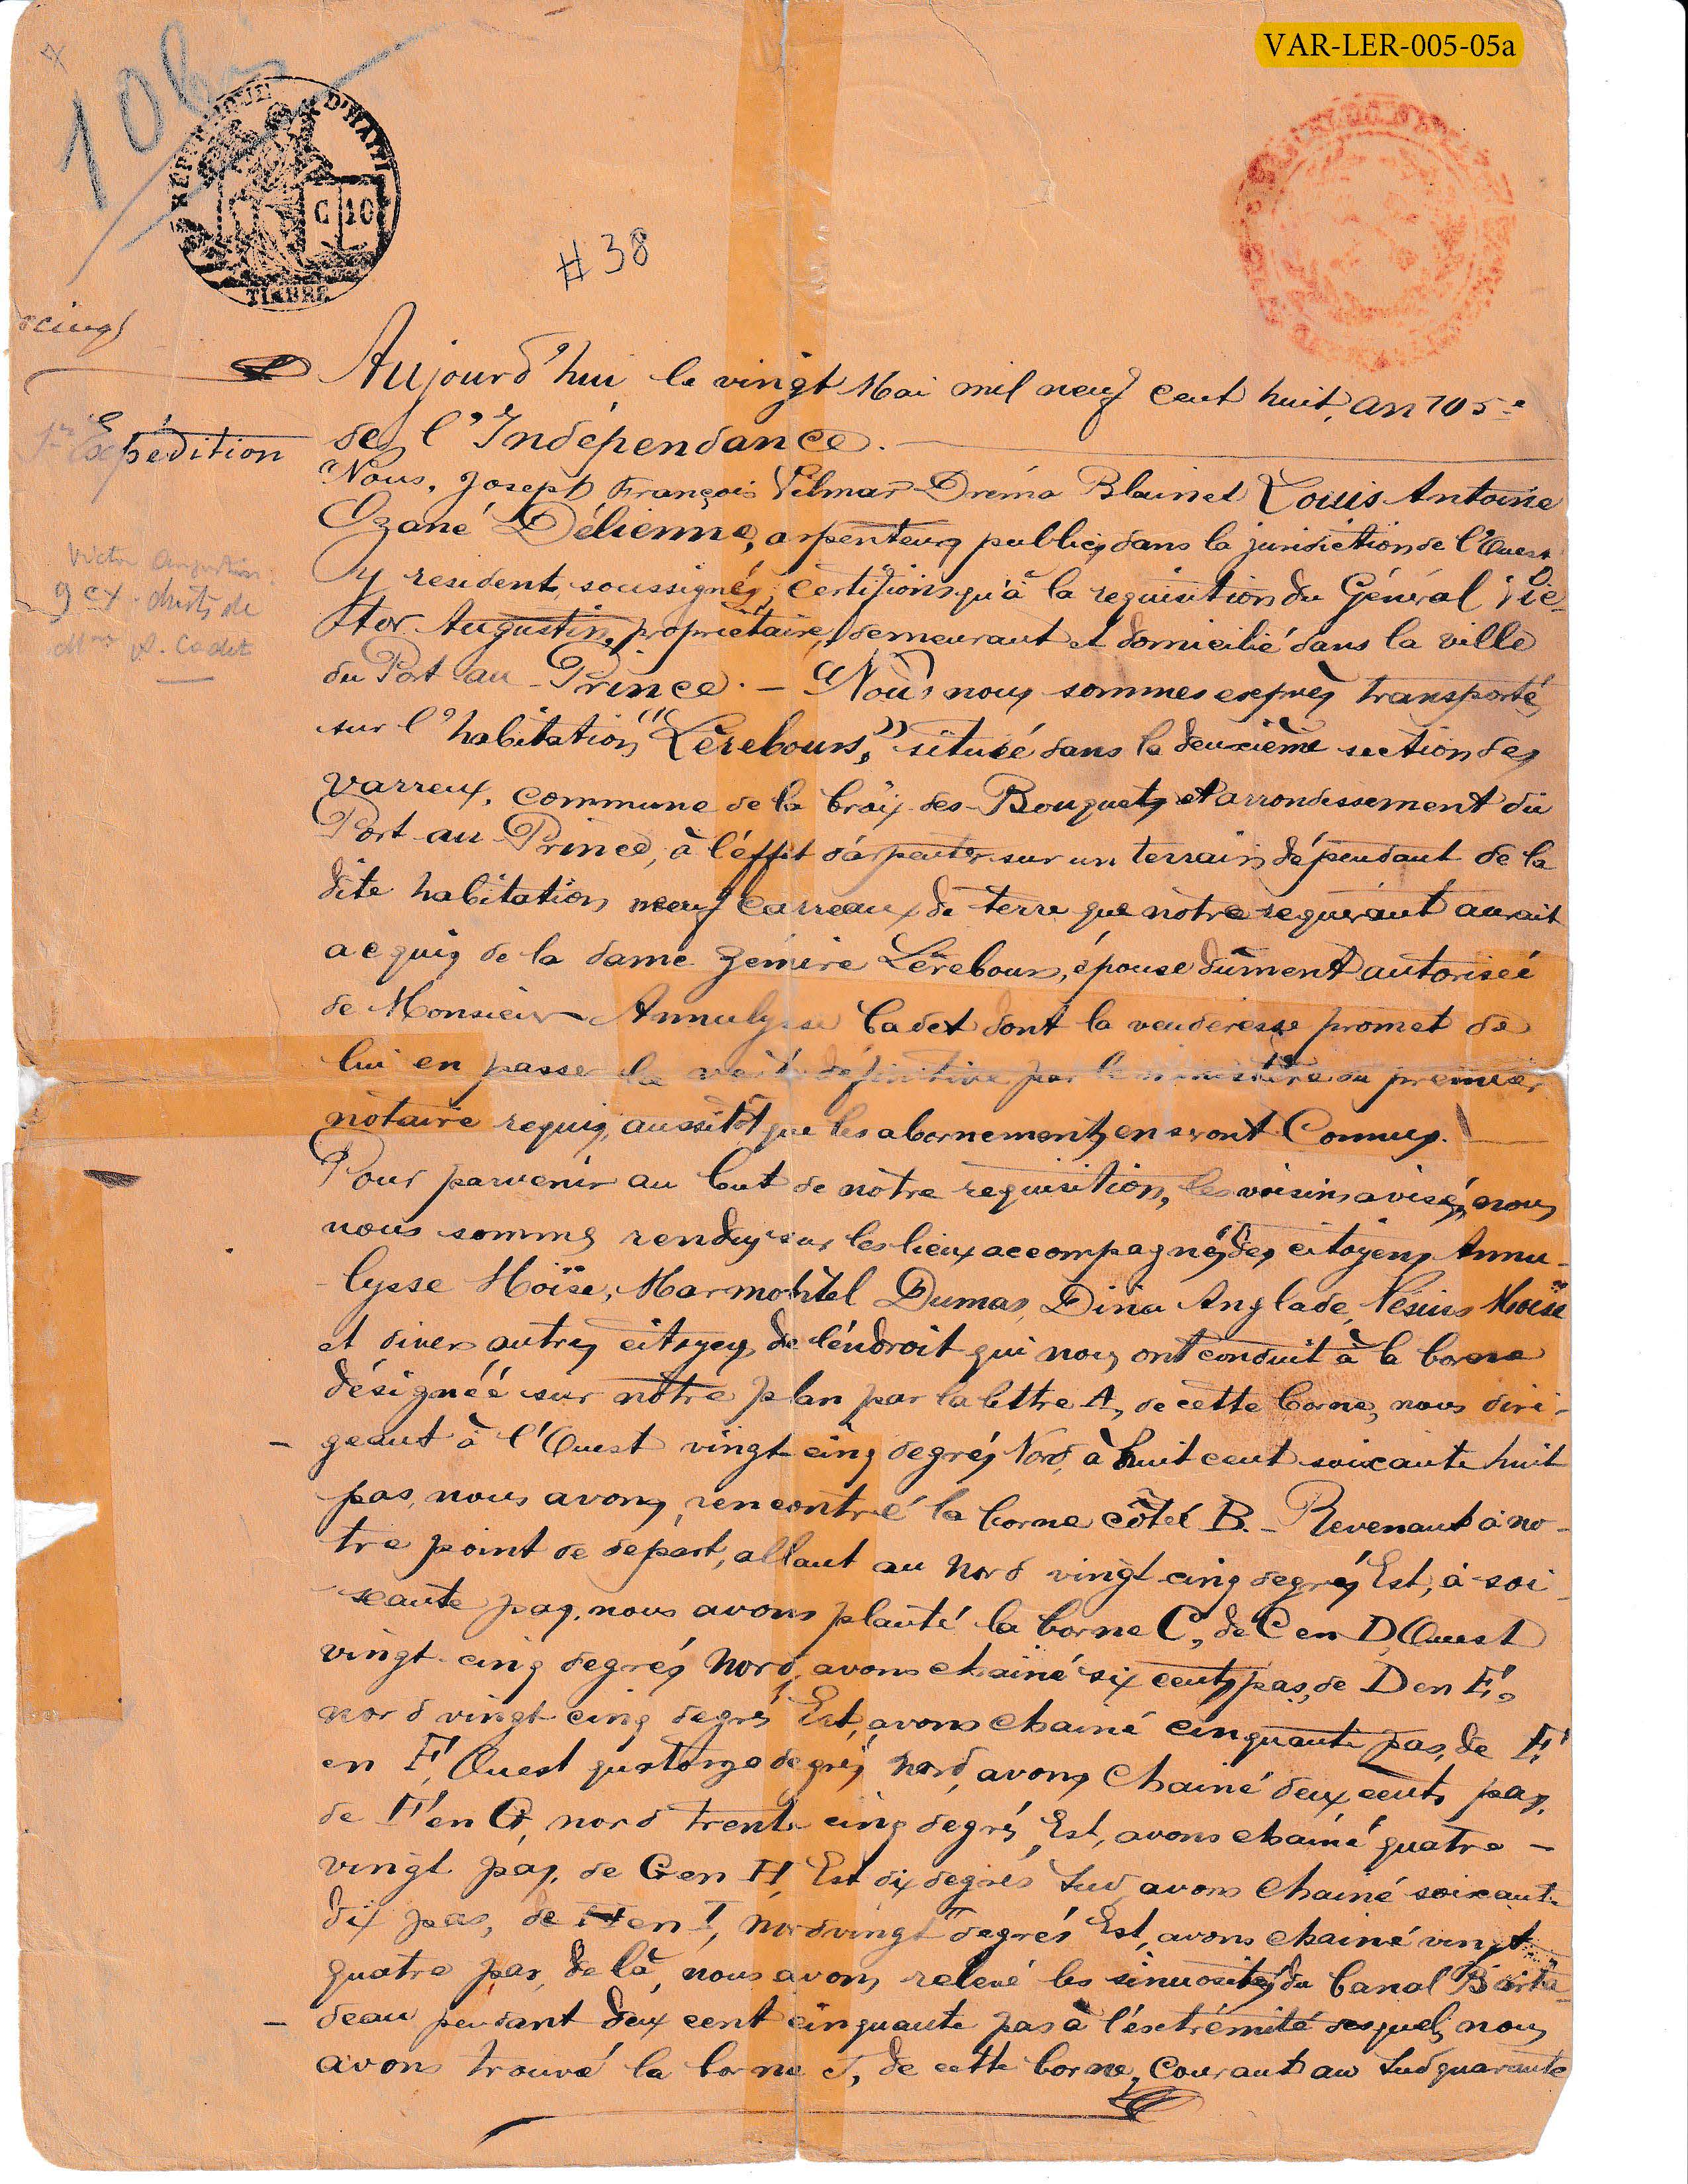 VAR-LER-005-05a
10 bis
REPUBLIQUE D'HAITI
C 10
TIMBRE
#38
Aujourd'hui le vingt Mai mil neuf cent huit, an 105e
de l'Indépendance.
Expédition
Nous, Joseph François Vilmar Dréma Blainet Louis Antoine
Ozané Délienne, arpenteurs publics dans la juridiction de l'Ouest
y resident, soussignés, certifions qu'à la requisition du Général Vic-
tor Augustin, propriétaire, demeurant et domicilié dans la ville
du Port au Prince. — Nous nous sommes exprès transporté
sur l'habitation "Lèrebours," située dans la deuxième section des
Varreux, commune de la Croix des Bouquets et arrondissement du
Port au Prince, à l'éffet d'arpenter sur un terrain dépendant de la
dite habitation neuf carreaux de terre que notre requérant aurait
acquis de la dame Zémire Lèrebours, épouse dûment autorisée
de Monsieur Annulysse Cadet dont la venderesse promet de
lui en passer la vente définitive par le ministère du premier
notaire requis, aussitôt que les abornements en seront Connus.
Pour parvenir au but de nôtre requisition, les voisins avisés, nous
nous sommes rendus sur les lieux accompagnés des citoyens Annu-
lysse Moïse, Marmontel Dumas, Dina Anglade, Vésius Moïse
et divers autres citoyens de l'endroit qui nous ont conduit à la borne
désignéé sur nôtre plan par la lettre A, de cette borne, nous diri-
geant à l'Ouest vingt cinq degrés Nord, à huit cent soixante huit
pas, nous avons rencontré la borne côtée B. — Revenant à no-
tre point de départ, allant au Nord vingt cinq degrés Est, à soi-
xante pas, nous avons planté la borne C, de C en D, Ouest
vingt-cinq degrés Nord, avons chainé six cents pas, de D en E,
nord vingt cinq degrés Est, avons chainé cinquante pas, de E
en F, Ouest quatorze degrés nord, avons chainé deux cents pas,
de F en G, nord trente cinq degrés Est, avons chainé quatre-
vingt pas, de G en H, Est dix degrés Sud, avons chainé soixante
dix pas, de H en I, nord vingt degrés Est, avons chainé vingt
quatre pas, de là, nous avons relevé les sinuosités du Canal
deau pendant deux cent cinquante pas à l'éxtrémité desquels nous
avons trouvé la borne J, de cette borne, courant au Sud quarante
Victor Augustin
9 cx. droits de
Mme A. Cadet